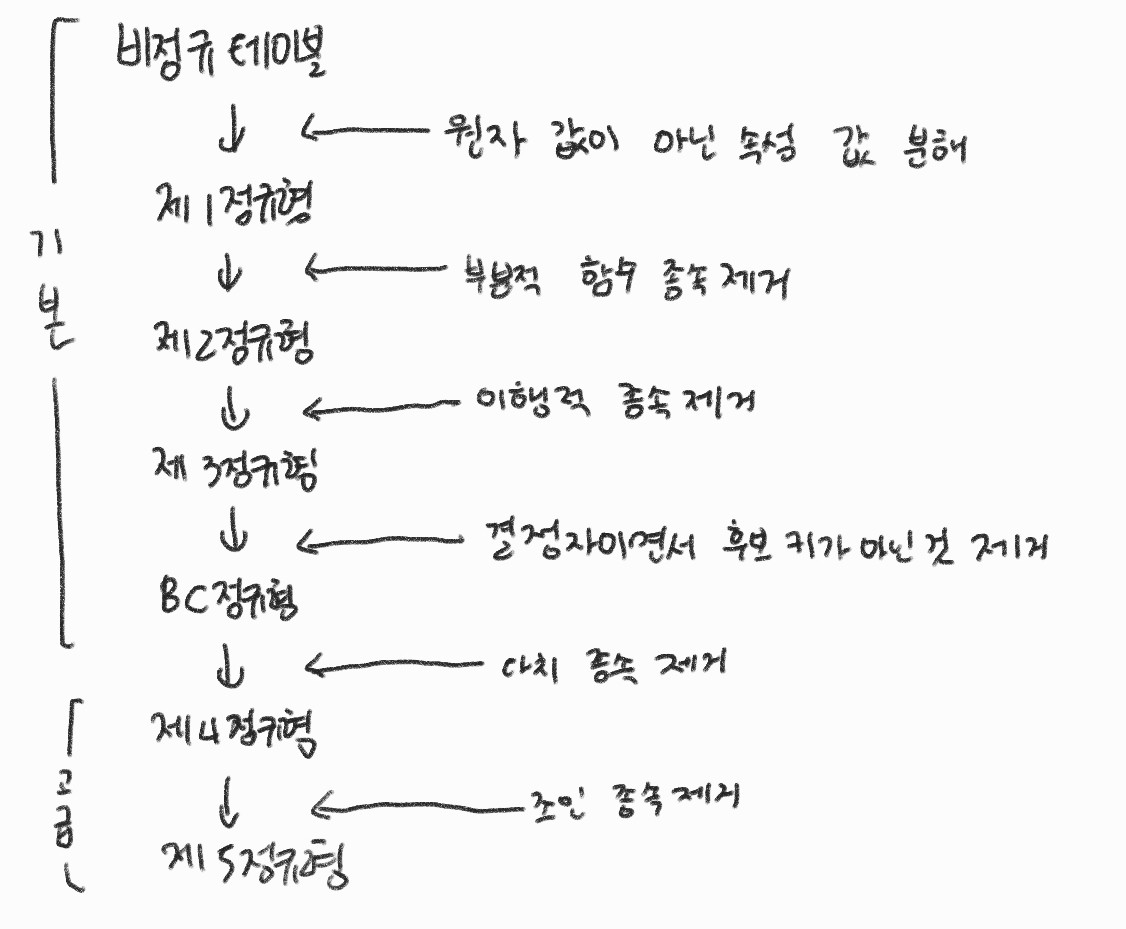 비정규 테이블
원자 값이 아닌 속성 값 분해
제1정규형
부분적 함수 종속 제거
제2정규형
이행적 종속 제거
제3정규형
결정자이면서 후보 키가 아닌 것 제거
BC정규형
다치 종속 제거
제4정규형
조인 종속 제거
제5정규형
기본
고급